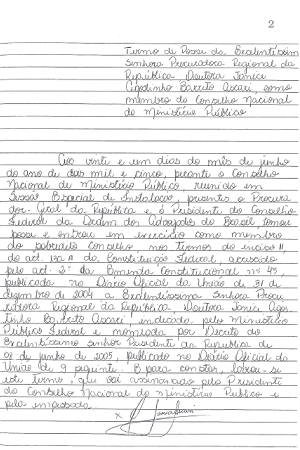 2
Termo de Posse da Excelentíssima
Senhora Procuradora Regional da
República Doutora Janice
Agostinho Barreto Ascari, como
membro do Conselho Nacional
do Ministério Público
Aos vinte e um dias do mês de junho
do ano de dois mil e cinco, perante o Conselho
Nacional do Ministério Público, reunido em
Sessão Especial de Instalação, presentes o Procura
dor-Geral da República e o Presidente do Conselho
Federal da Ordem dos Advogados do Brasil, tomou
posse e entrou em exercício como membro
do Conselho nos termos do inciso II,
do art. 130 A da Constituição Federal, acrescido
pelo art. 2º da Emenda Constitucional nº 45,
publicada no Diário Oficial da União de 31 de
dezembro de 2004, a Excelentíssima Senhora Procu
radora Regional da República Doutora Janice Agos
tinho Barreto Ascari, indicada pelo Ministério
Público Federal e nomeada por Decreto do
Excelentíssimo Senhor Presidente da República de
08 de junho de 2005, publicado no Diário Oficial da
União de 9 seguinte. E para constar, lavrou-se
este termo, que vai assinado pelo Presidente
do Conselho Nacional do Ministério Público e
pela empossada.
x